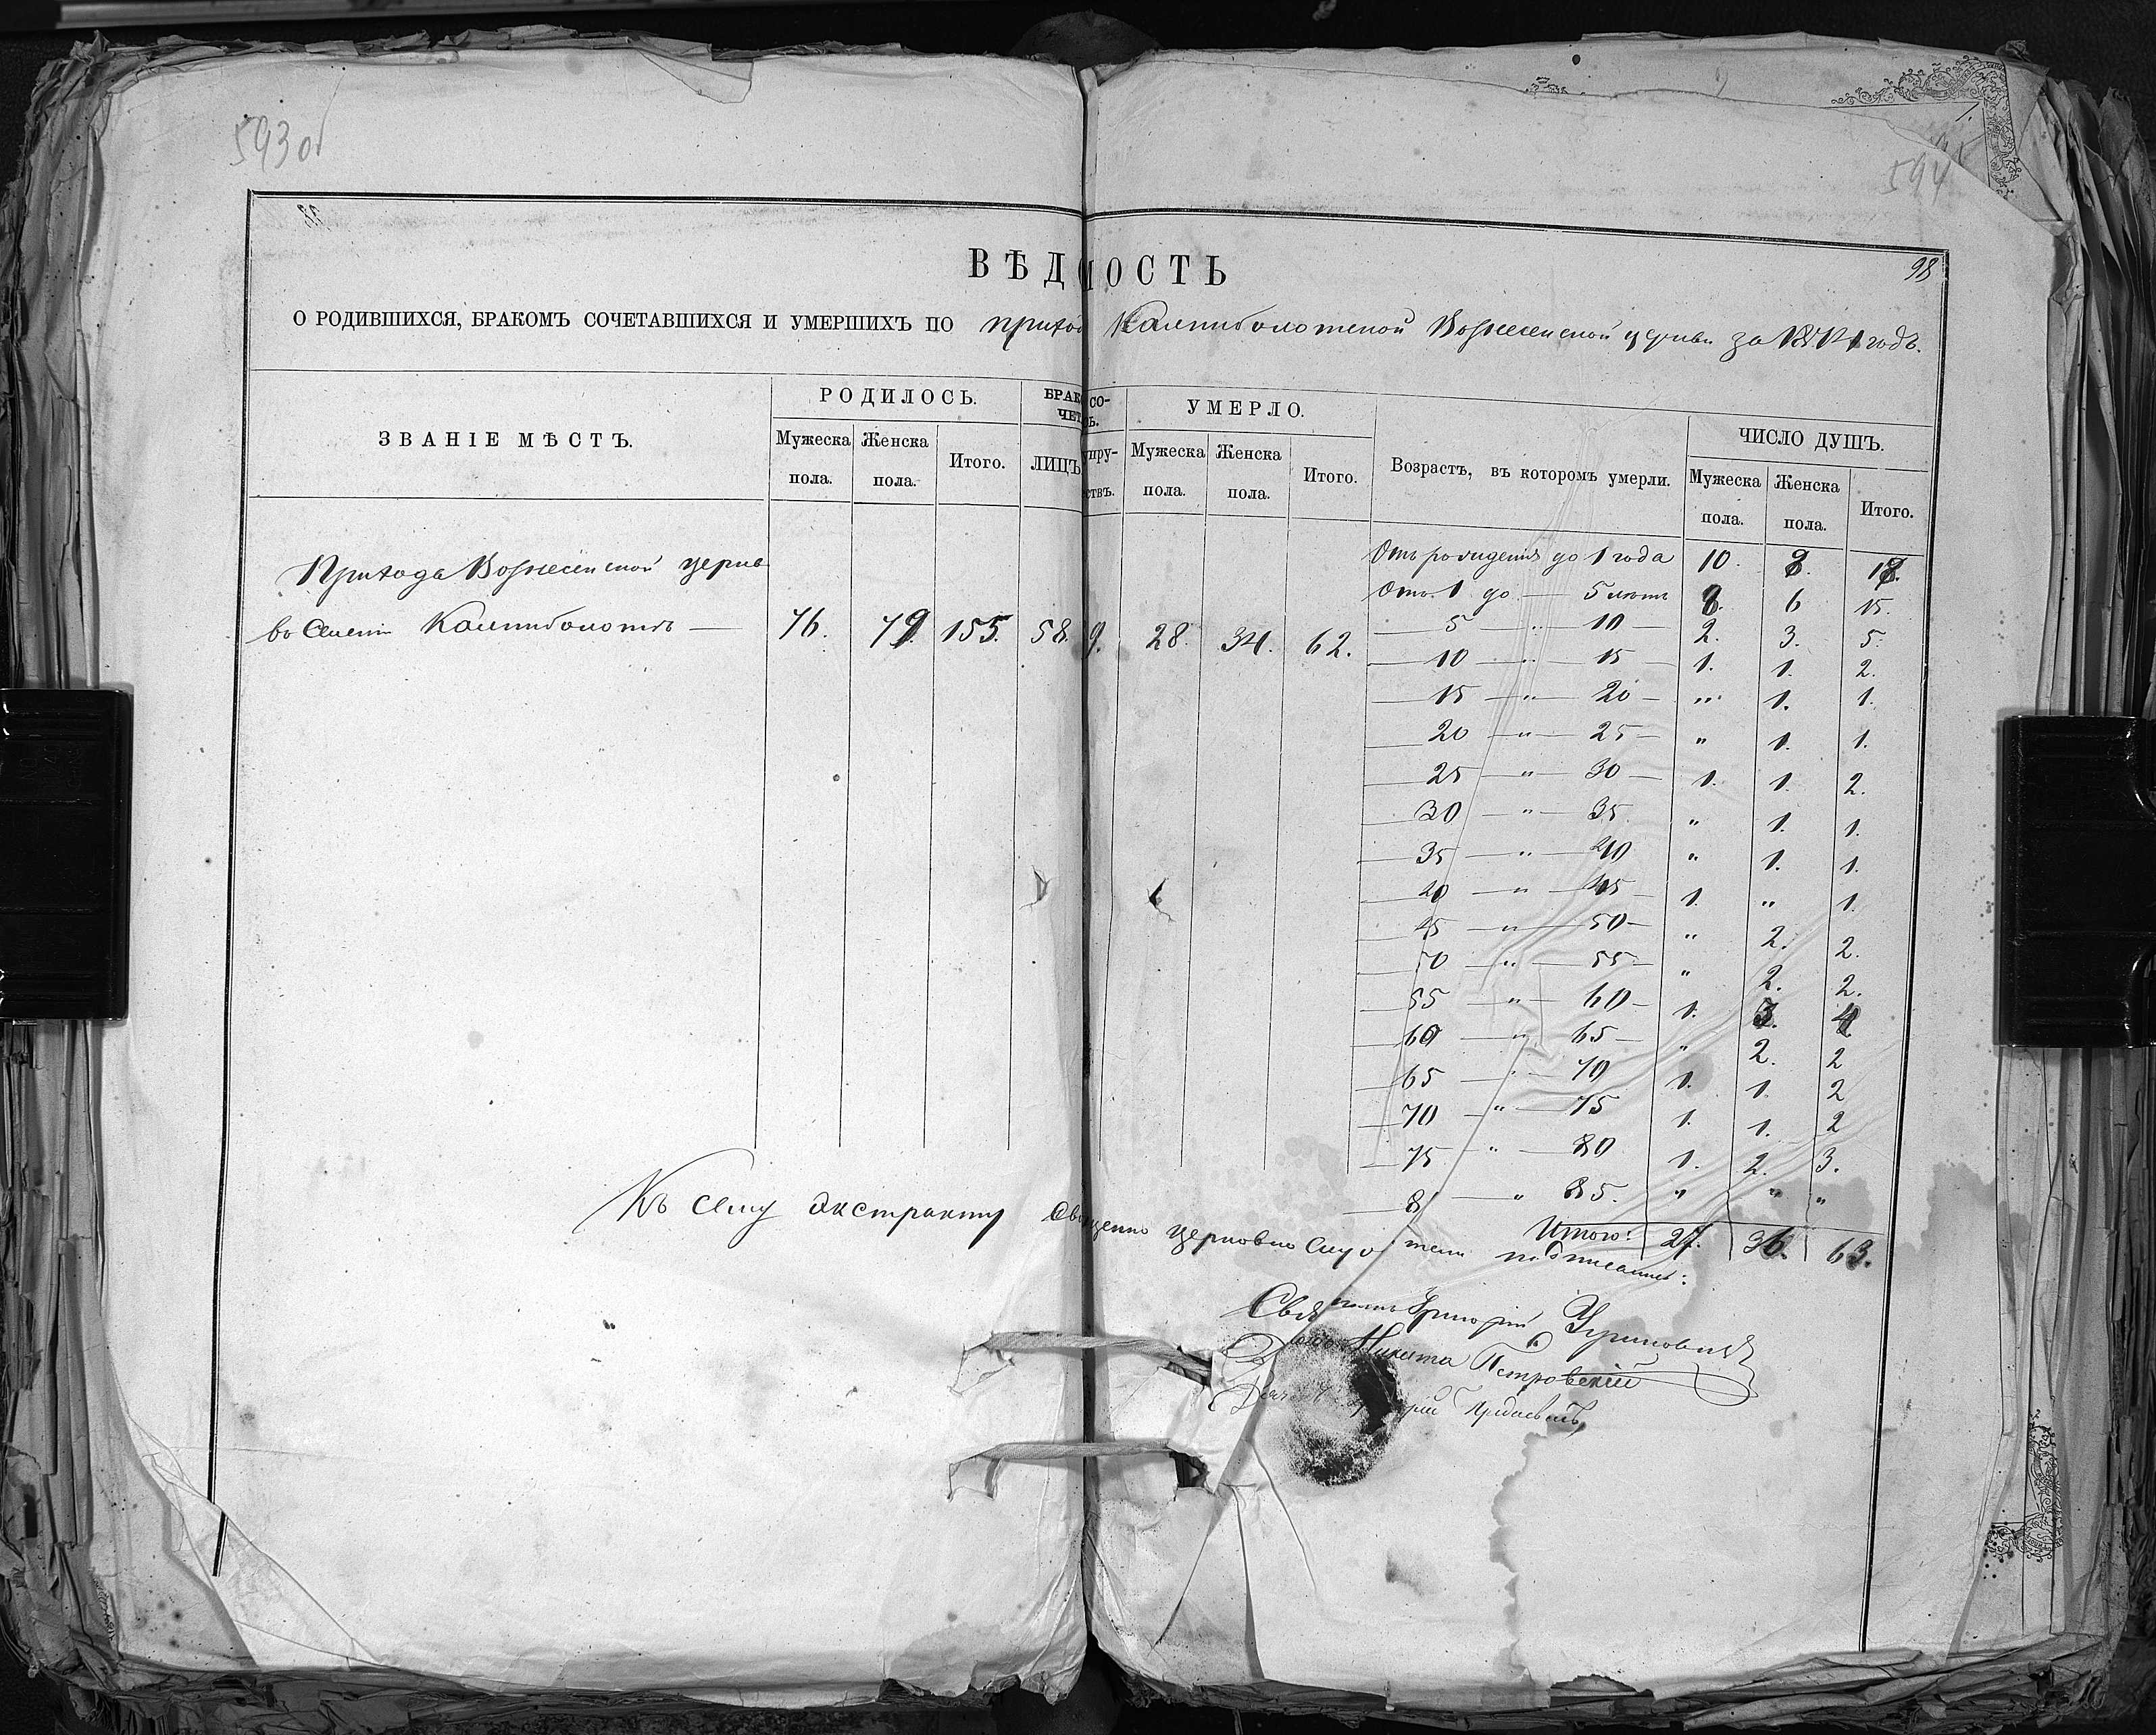 593 об
594
98
ВѢДМОСТЬ
О РОДИВШИХСЯ, БРАКОМЪ СОЧЕТАВШИХСЯ И УМЕРШИХЪ ПО приход Калниболотской Вознесенской церкви за 1871 годъ.
ЗВАНІЕ МѢСТЪ.
РОДИЛОСЬ.
Мужеска пола.
Женска пола.
Итого.
БРАК СО-
ЧЕТ Ь.
ЛИЦЪ
упру-
ствъ.
УМЕРЛО.
Мужеска пола.
Женска пола.
Итого.
Возрастъ, въ которомъ умерли.
ЧИСЛО ДУШЪ.
Мужеска пола.
Женска пола.
Итого.
Прихода Вознесенской церкв
въ Селеніи Калниболотъ — 76. 79. 155. 58. 9. 28. 34. 62.
Отъ рожденія до 1 года 10. 8. 18.
Отъ 1 до — 5 лѣтъ 6 15.
— 5 — " — 10 — 2. 3. 5.
— 10 — " — 15 — 1. 1. 2.
— 15 — " — 20 — " 1. 1.
— 20 — " — 25 — " 1. 1.
— 25 — " — 30 — 1. 1. 2.
— 30 — " — 35 " 1. 1.
— 35 — " — 40 " 1. 1.
— 40 — " — 45 — 1. " 1.
— 45 — " — 50 — " 2. 2.
— 50 — " — 55 — " 2. 2.
— 55 — " — 60 — 1. 3. 4
— 60 — " — 65 — " 2. 2
— 65 — " — 70 1. 1. 2
— 70 — " — 75 1. 1. 2
— 75 " — 80 1. 2. 3.
— 8 — " 85. " " "
Итого: 27. 36. 63.
Къ сему экстракту Священно церковно служители подписались:
Григорій
Никита Петровскій